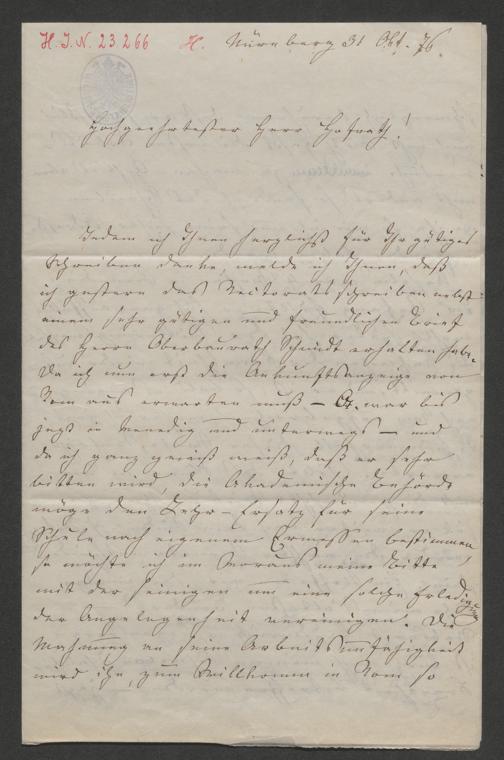 H. I. N. 23.266 H. Nürnberg 31 Okt. 76.
Hochgeehrtester Herr Hofrath!
Indem ich Ihnen herzlichst für Ihr gütiges
Schreiben danke, melde ich Ihnen, daß
ich gestern das Rectoratsschreiben nebst
einem sehr gütigen und freundlichen Brief
des Herrn Oberbaurath Schmidt erhalten habe.
Da ich nun erst die Ankunftsanzeige von
Rom aus erwarten muß — er war bis
jetzt in Venedig und unterwegs — und
da ich ganz gewiß weiß, daß er sehr
bitten wird, die Akademische Behörde
möge den Lehr-Ersatz für seine
Schule nach eigenem Ermessen bestimmen,
so möchte ich im Voraus meine Bitte
mit der seinigen um eine solche Erledigung
der Angelegenheit vereinigen. Die
Mahnung an seine Arbeitsunfähigkeit
wird ihm, zum Willkomm in Rom so